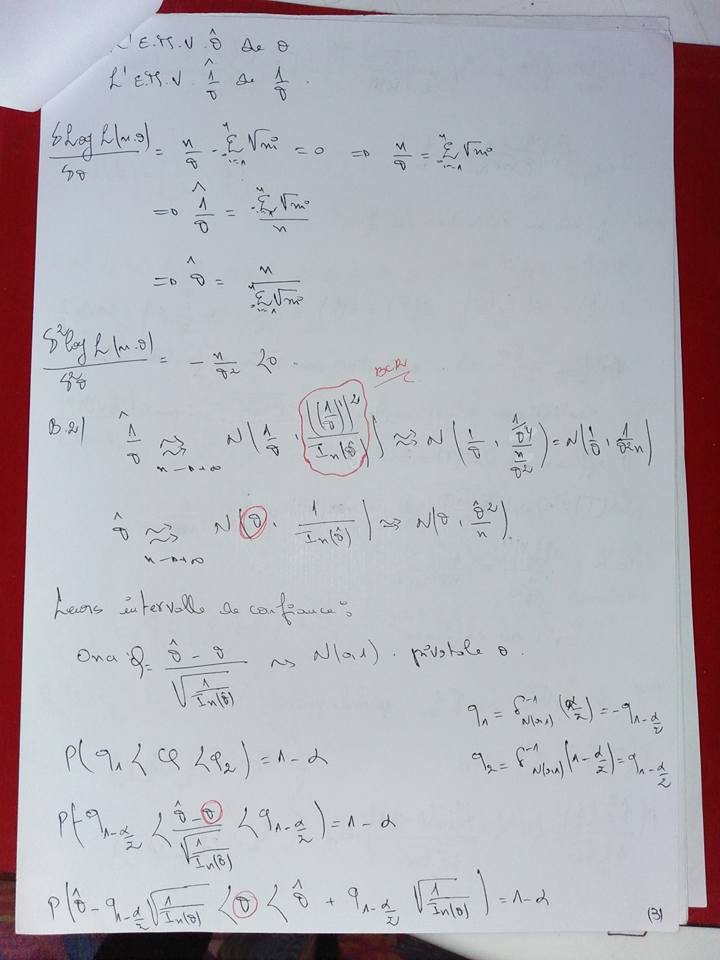 L'E.M.V. θ̂ de θ
L'E.M.V. 1/θ̂ de 1/θ.
δLog L(x.θ)/δθ = n/θ - Σⁿᵢ₌₁ √xi = 0 ⇒ n/θ = Σⁿᵢ₌₁ √xi
⇒ 1/θ̂ = Σⁿᵢ₌₁ √xi / n
⇒ θ̂ = n / Σⁿᵢ₌₁ √xi
δ²log L(x.θ)/δ²θ = - n/θ² < 0.
BCR
B.2/ 1/θ̂ ≈> n→+∞ N(1/θ, ((1/θ)')²/In(θ̂)) ≈> N(1/θ, (1/θ̂⁴)/(n/θ̂²)) = N(1/θ, 1/θ̂²n)
θ̂ ≈> n→+∞ N(θ, 1/In(θ̂)) ≈> N(θ, θ̂²/n).
Leurs intervalle de confiance:
On a Q = (θ̂ - θ)/√(1/In(θ̂)) ~> N(0,1). pivotale θ.
q₁ = f⁻¹N(0,1)(α/2) = -q₁₋α/2
P(q₁ < Q < q₂) = 1-α
q₂ = f⁻¹N(0,1)(1-α/2) = q₁₋α/2
P(-q₁₋α/2 < (θ̂ - θ)/√(1/In(θ̂)) < q₁₋α/2) = 1-α
P(θ̂ - q₁₋α/2 √(1/In(θ̂)) < θ < θ̂ + q₁₋α/2 √(1/In(θ̂))) = 1-α
(3)